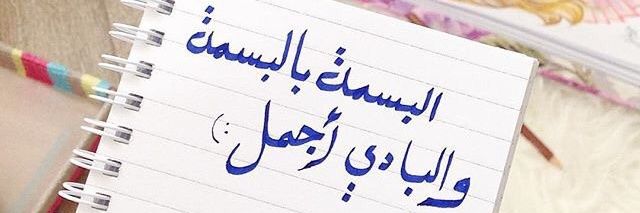 البسمة بالبسمة
والبادي أجمل :)